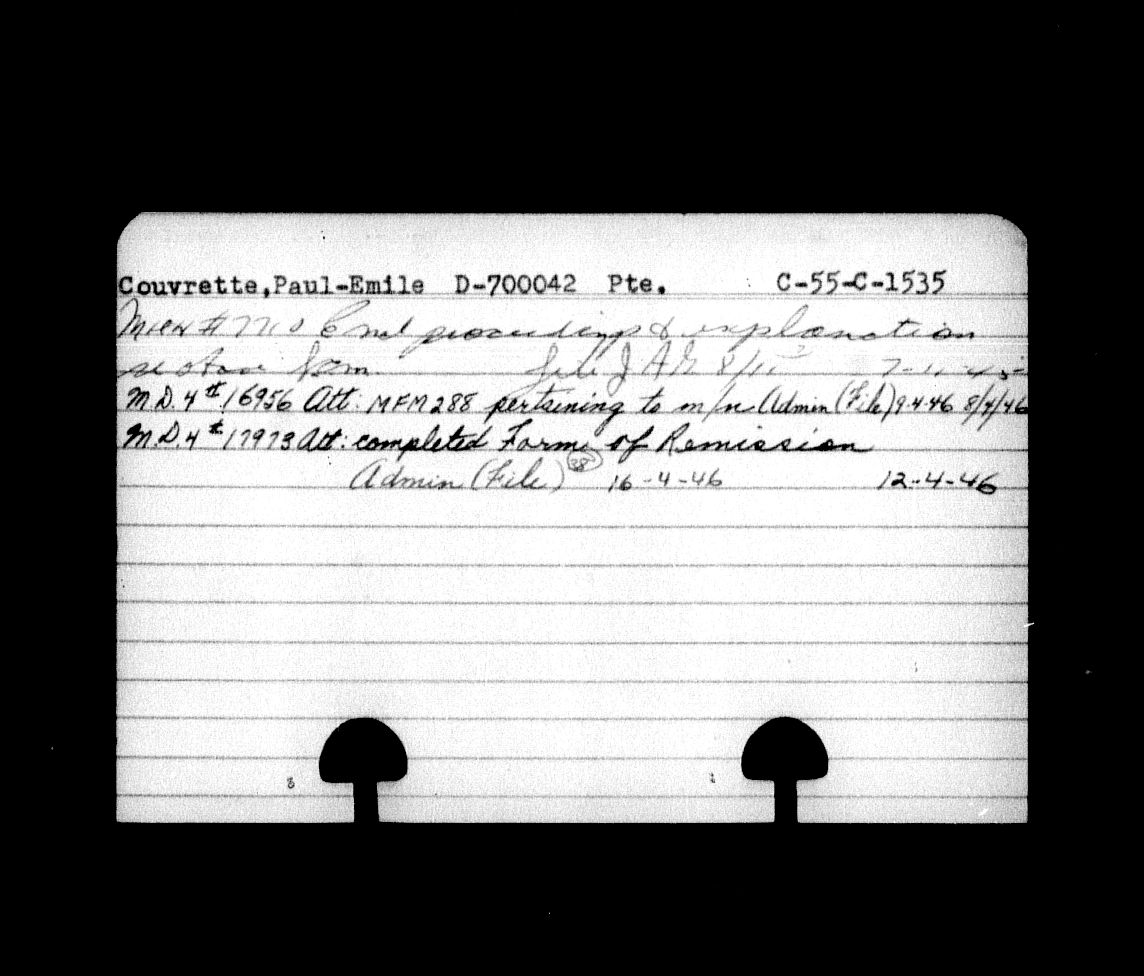 Couvrette,Paul-Emile D-700042 Pte. C-55-C-1535
# proceedings & explanation
file JAG
M.D. 4 # 16956 Att: MFM 288 pertaining to m/n Admin (File) 9-4-46 8/4/46
M.D. 4 # 17973 Att: completed Forms of Remission
Admin (File) 38 16-4-46 12-4-46